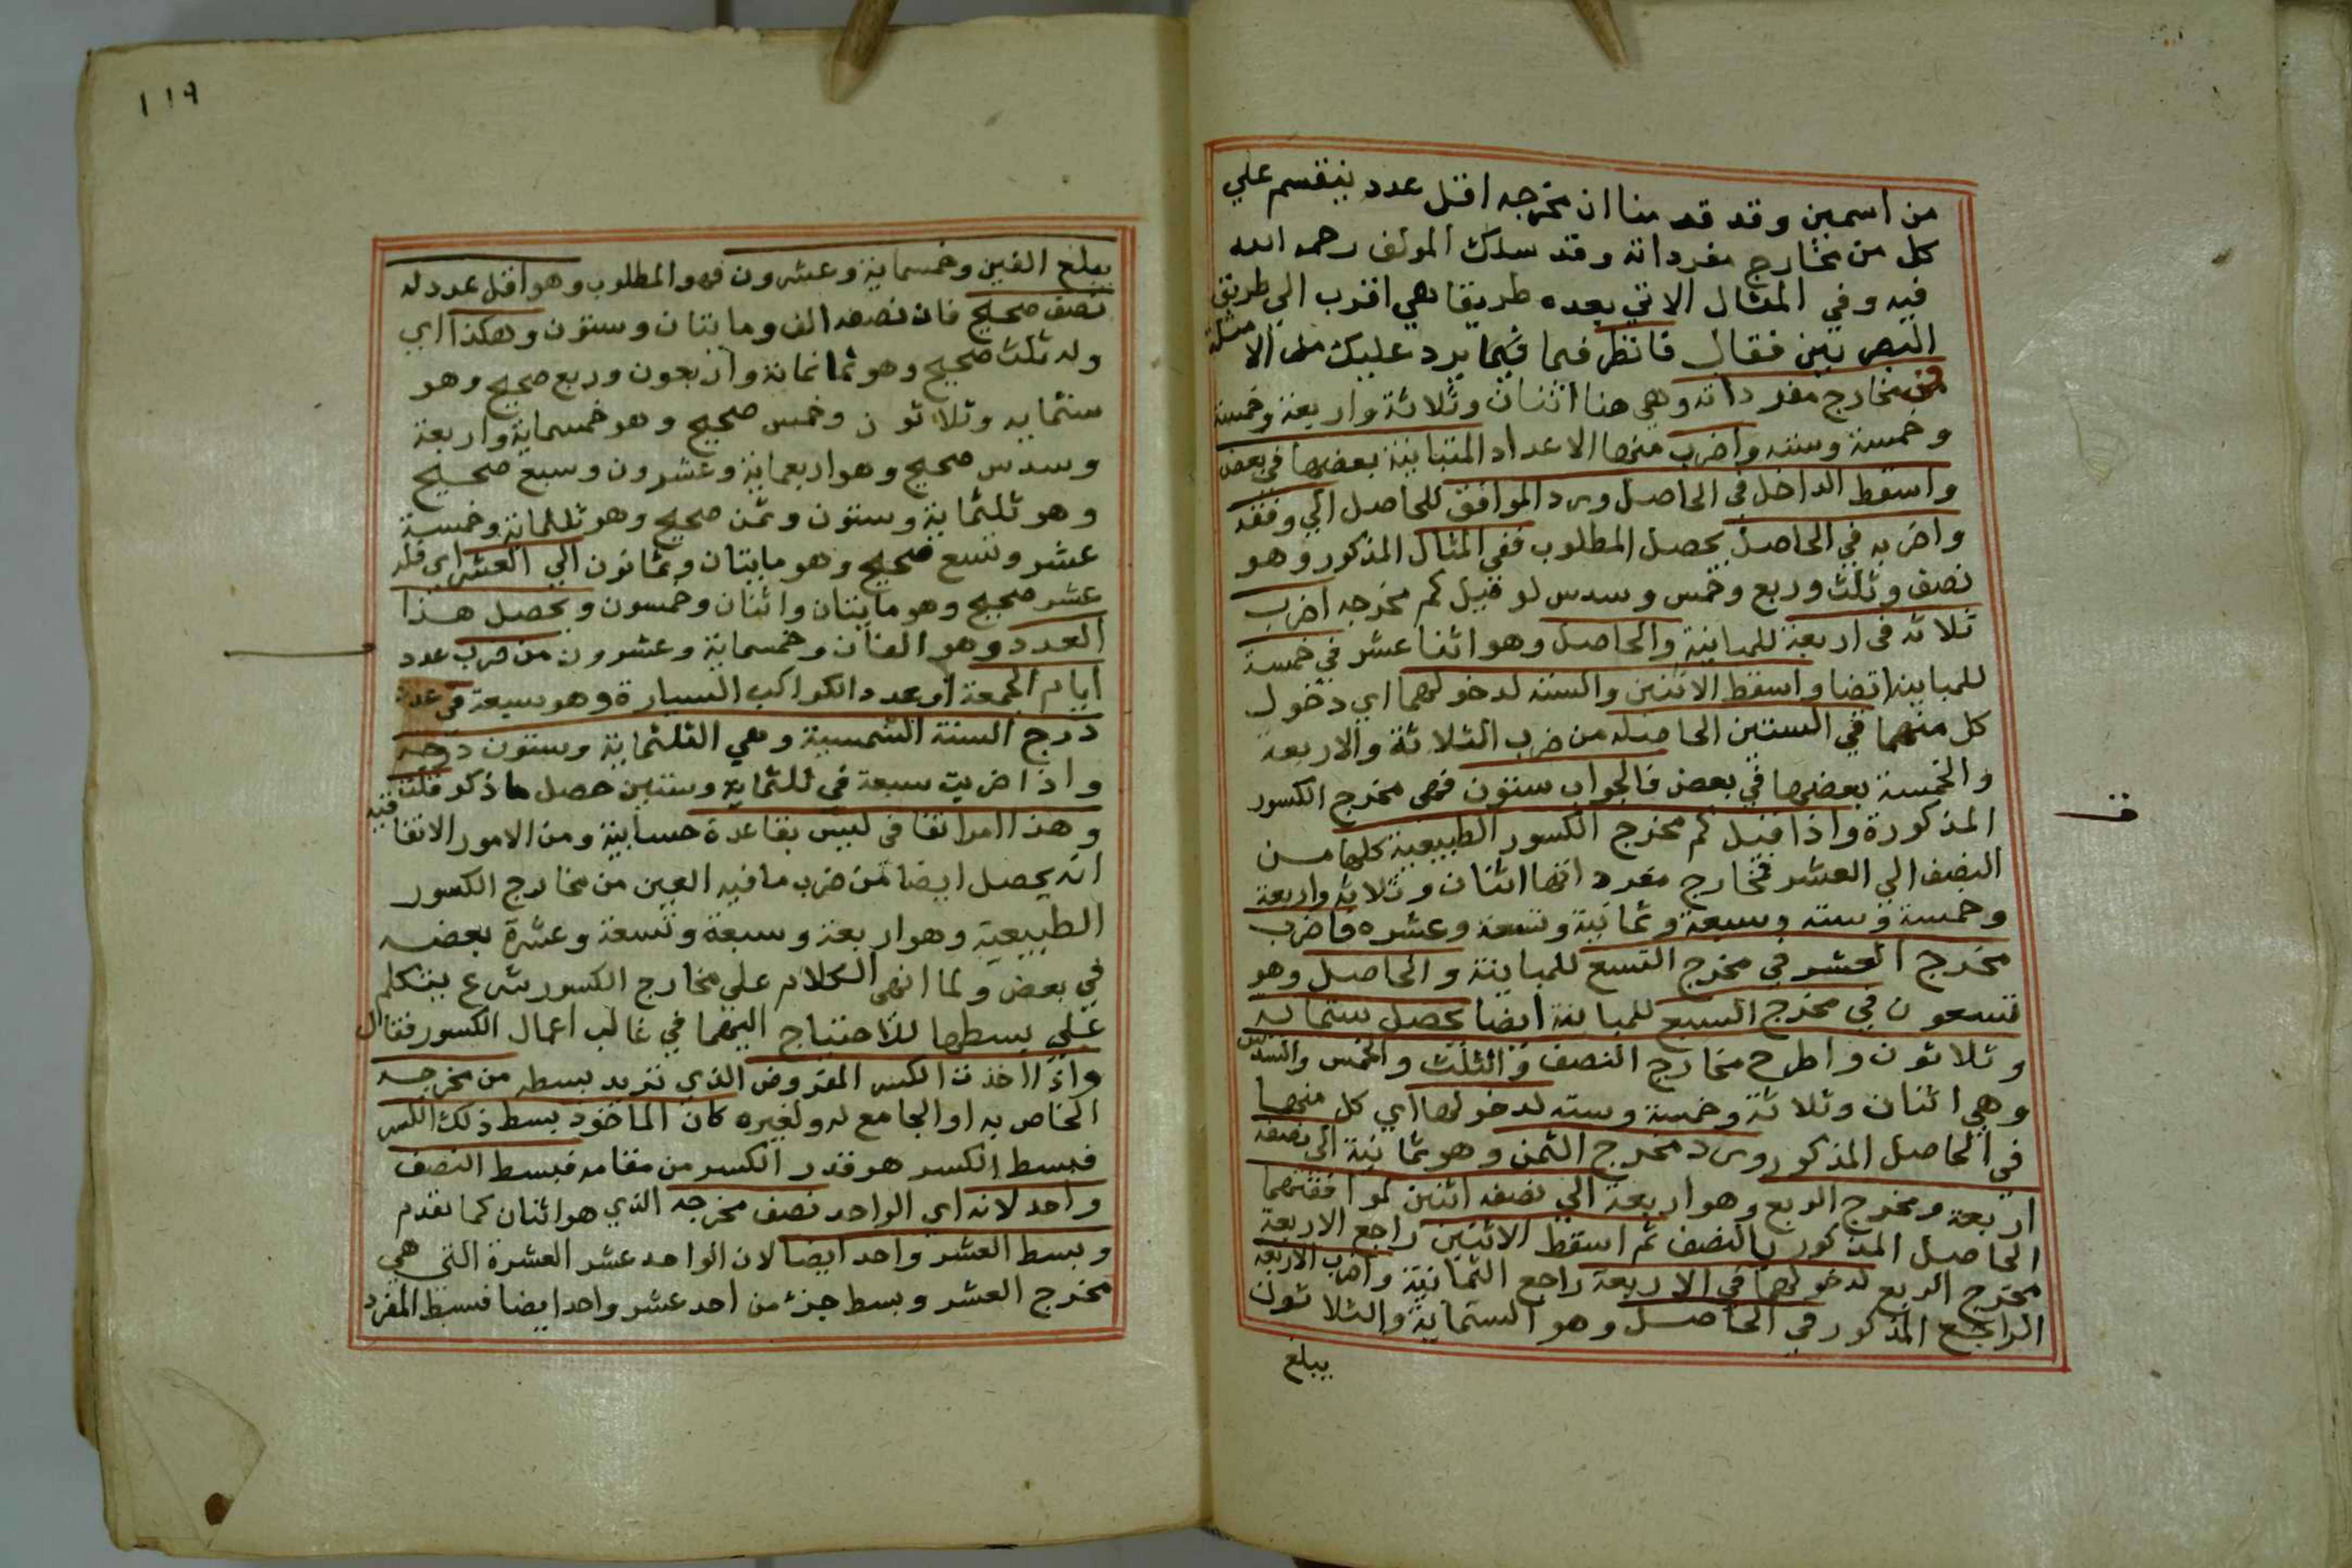 من اسمين وقد قدمنا ان مخرجه اقل عدد ينقسم علي
كل من مخارج مفرداته وقد سلك المولف رحمه الله
فيه وفي المثال الاتي بعده طريقا هي اقرب الي طريق
البصريين فقال فانظر فيما يرد عليك من الامثلة
من مخارج مفرداته وهي هنا اثنان وثلاثة واربعة وخمسة
وخمسة وسته واضرب منها الاعداد المتباينة بعضها في بعض
واسقط الداخل في الحاصل ورد الموافق للحاصل الي وفقه
واضربه في الحاصل يحصل المطلوب ففي المثال المذكور وهو
نصف وثلث وربع وخمس وسدس لو قيل كم مخرجه اضرب
ثلاثه في اربعة للمباينة والحاصل وهو اثنا عشر في خمسة
للمباينة ايضا واسقط الاثنين والسته لدخولهما اي دخول
كل منهما في الستين الحاصله من ضرب الثلاثة والاربعة
والخمسة بعضها في بعض فالجواب ستون فهي مخرج الكسور
المذكورة واذا قيل كم مخرج الكسور الطبيعية كلها من
النصف الي العشر فمخارج مفرداتها اثنان وثلاثه واربعة
وخمسة وسته وسبعة وثمانية وتسعة وعشره فاضرب
مخرج العشر في مخرج التسع للمباينة والحاصل وهو
تسعون في مخرج السبع للمباينة ايضا يحصل ستمايه
وثلاثون واطرح مخارج النصف والثلث والخمس والسدس
وهي اثنان وثلاثة وخمسة وسته لدخولها اي كل منها
في الحاصل المذكور ورد مخرج الثمن وهو ثمانية الي نصفه
اربعة ومخرج الربع وهو اربعة الي نصفه اثنين لموافقتهما
الحاصل المذكور بالنصف ثم اسقط الاثنين راجع الاربعة
مخرج الربع لدخولها في الاربعة راجع الثمانية واضرب الاربعة
الراجع المذكور في الحاصل وهو الستماية والثلاثون
يبلغ
١١٩
يبلغ الفين وخمسماية وعشرون فهو المطلوب وهو اقل عدد له
نصف صحيح فان نصفه الف ومايتان وستون وهكذا اي
وله ثلث صحيح وهو ثمانمائة واربعون وربع صحيح وهو
ستمايه وثلاثون وخمس صحيح وهو خمسماية واربعة
وسدس صحيح وهو اربعماية وعشرون وسبع صحيح
وهو ثلثماية وستون وثمن صحيح وهو ثلثماية وخمسة
عشر وتسع صحيح وهو مايتان وثمانون الي العشر اي فله
عشر صحيح وهو مايتان واثنان وخمسون ويحصل هذا
العدد وهو الفان وخمسماية وعشرون من ضرب عدد
ايام الجمعة او عدد الكواكب السيارة وهو سبعة في عدد
درج السنة الشمسية وهي الثلثماية وستون درجه
واذا ضربت سبعة في ثلثماية وستين حصل ما ذكر قلت
وهذا امر اتفاقي ليس بقاعدة حسابية ومن الامور الاتفاقية
انه يحصل ايضا من ضرب ما فيه العين من مخارج الكسور
الطبيعية وهو اربعة وسبعة وتسعة وعشرة بعضه
في بعض ولما انهي الكلام علي مخارج الكسور شرع يتكلم
علي بسطها للاحتياج اليهما في غالب اعمال الكسور فقال
واذا اخذت الكسر المفروض الذي تريد بسطه من مخرجه
الخاص به او الجامع له ولغيره كان الماخوذ بسط ذلك الكسر
فبسط الكسر هو قدر الكسر من مقامه فبسط النصف
واحد لانه اي الواحد نصف مخرجه الذي هو اثنان كما تقدم
وبسط العشر واحد ايضا لان الواحد عشر العشرة التي هي
مخرج العشر وبسط جزء من احد عشر واحد ايضا فبسط المفرد